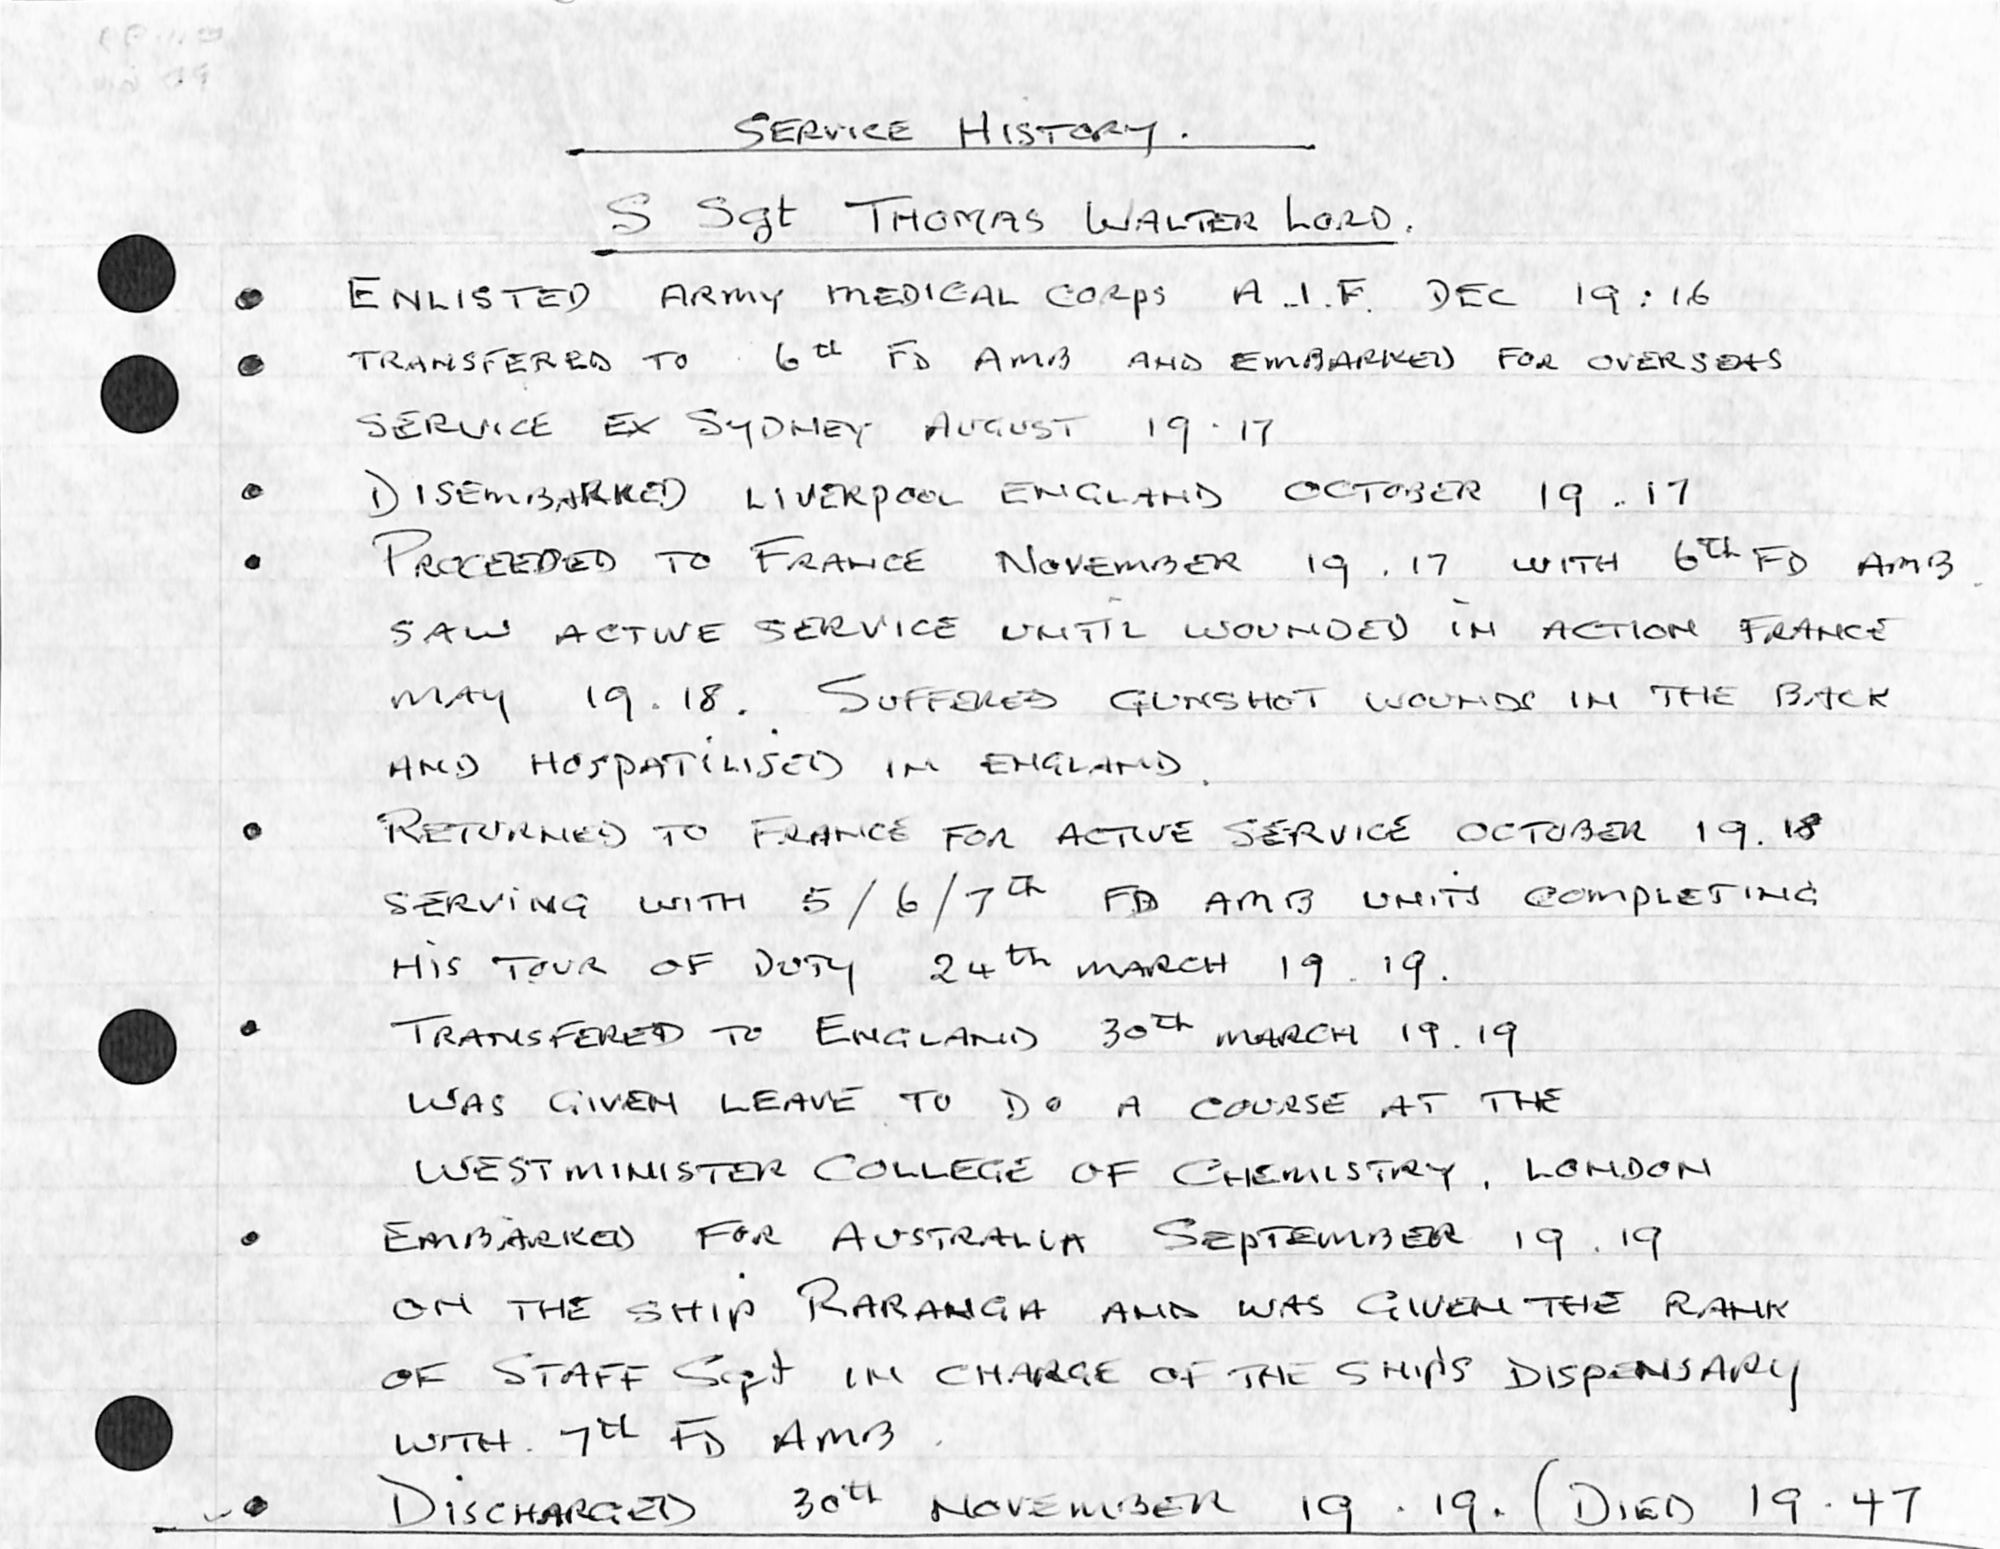 SERVICE HISTORY.
S Sgt THOMAS WALTER LORD.
• ENLISTED ARMY MEDICAL CORPS A.I.F. DEC 19:16
• TRANSFERED TO 6th FD AMB AND EMBARKED FOR OVERSEAS
SERVICE EX SYDNEY AUGUST 19.17
• DISEMBARKED LIVERPOOL ENGLAND OCTOBER 19.17
• PROCEEDED TO FRANCE NOVEMBER 19.17 WITH 6th FD AMB.
SAW ACTIVE SERVICE UNTIL WOUNDED IN ACTION FRANCE
MAY 19.18. SUFFERED GUNSHOT WOUNDS IN THE BACK
AND HOSPATILISED IN ENGLAND.
• RETURNED TO FRANCE FOR ACTIVE SERVICE OCTOBER 19.18
SERVING WITH 5/6/7th FD AMB UNITS COMPLETING
HIS TOUR OF DUTY 24th MARCH 19.19.
• TRANSFERED TO ENGLAND 30th MARCH 19.19
WAS GIVEN LEAVE TO DO A COURSE AT THE
WESTMINISTER COLLEGE OF CHEMISTRY, LONDON
• EMBARKED FOR AUSTRALIA SEPTEMBER 19.19
ON THE SHIP RARANGA AND WAS GIVEN THE RANK
OF STAFF Sgt IN CHARGE OF THE SHIPS DISPENSARY
WITH 7th FD AMB.
• DISCHARGED 30th NOVEMBER 19.19. (DIED 19.47